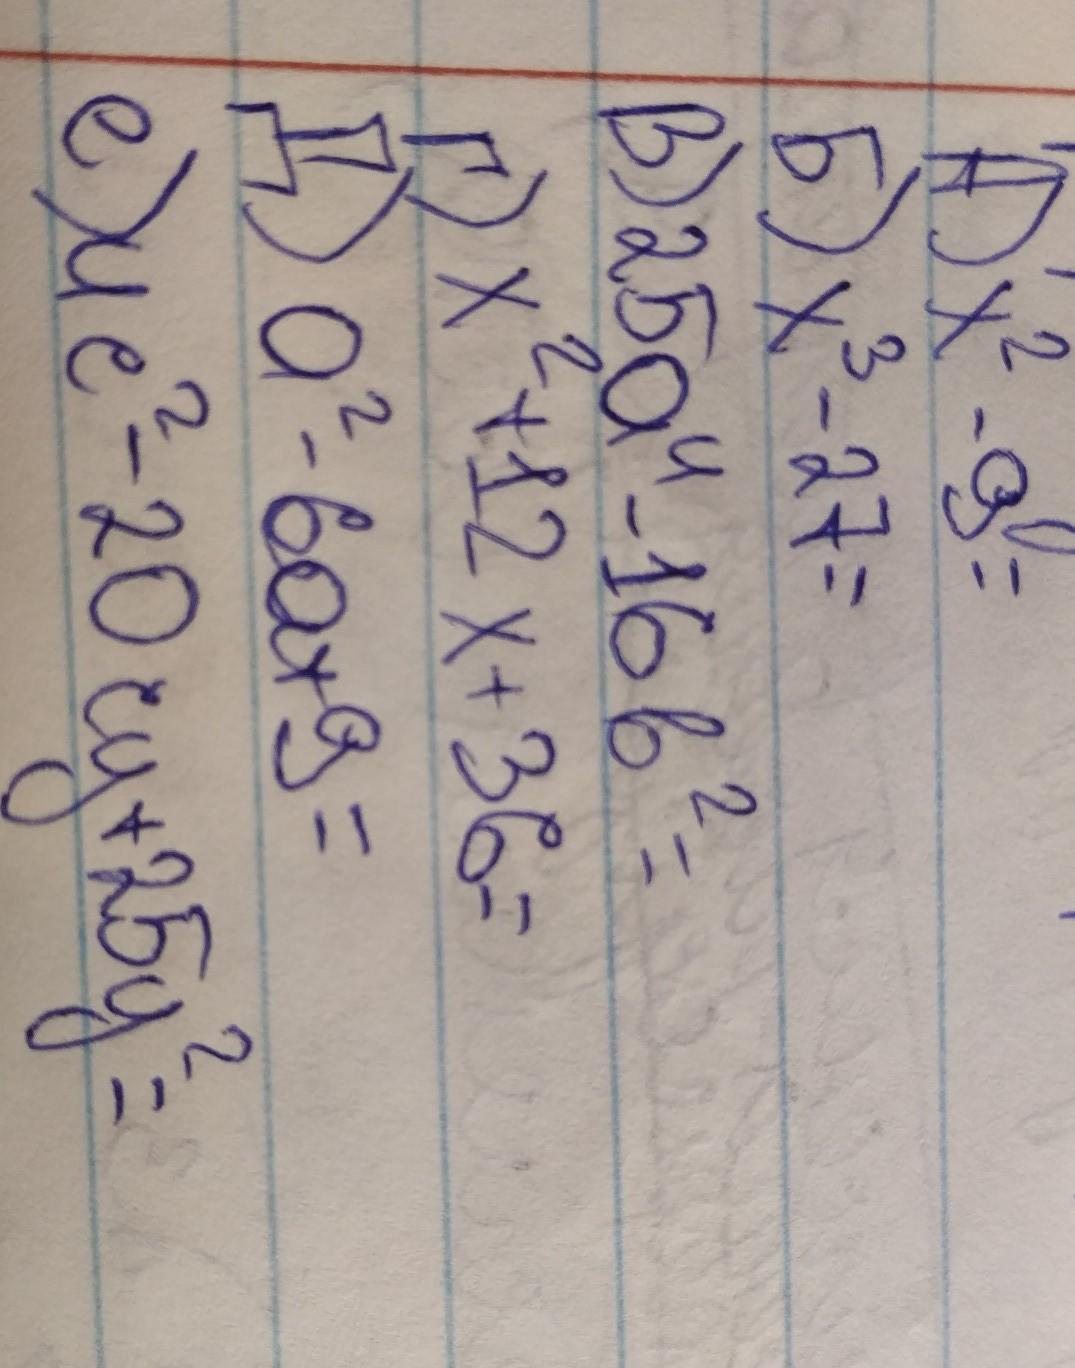 А) x² - 9 =
Б) x³ - 27 =
В) 25a⁴ - 16b² =
Г) x² + 12x + 36 =
Д) a² - 6a + 9 =
е) 4c² - 20cy + 25y² =